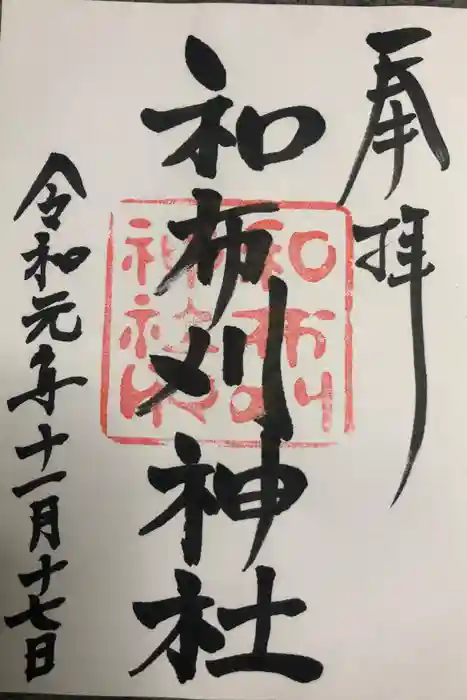 奉拝
和布刈神社
和布刈
神社印
令和元年十一月十七日